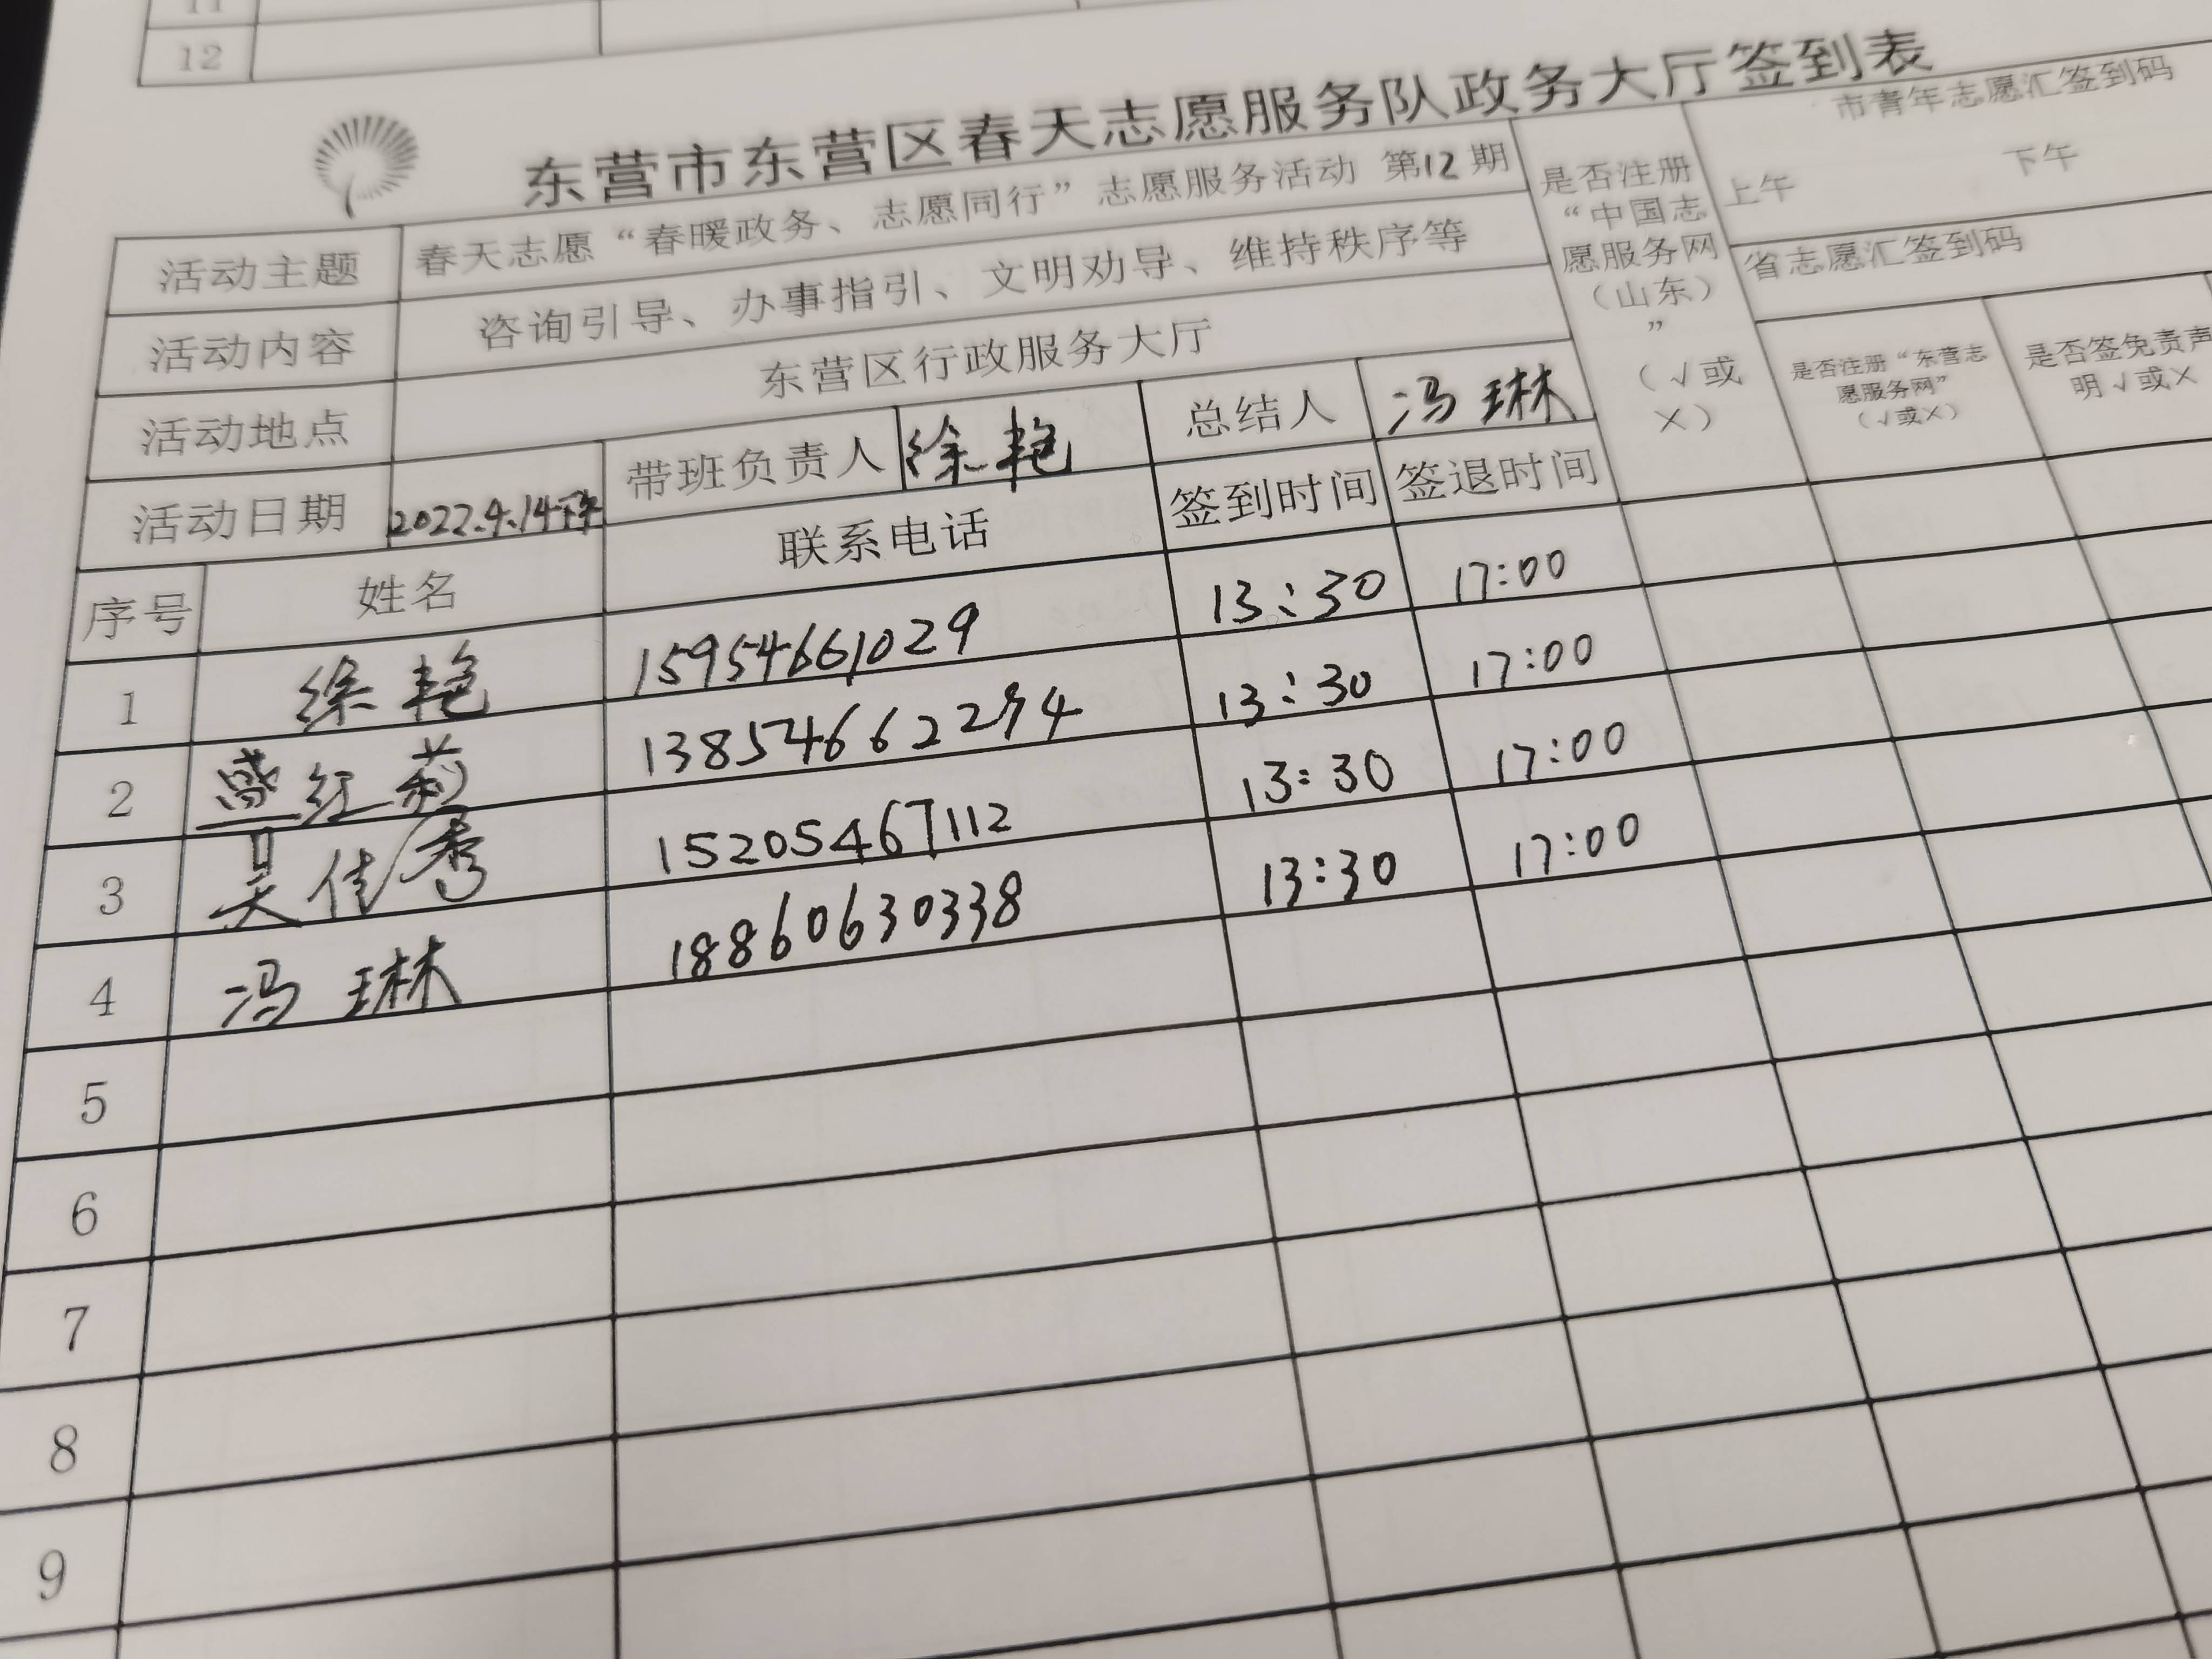 11
12
东营市东营区春天志愿服务队政务大厅签到表
活动主题 春天志愿“春暖政务、志愿同行”志愿服务活动 第12期
是否注册“中国志愿服务网（山东）”（√或×）
市青年志愿汇签到码
上午 下午
省志愿汇签到码
是否注册“东营志愿服务网”（√或×）
是否签免责声明√或×
活动内容 咨询引导、办事指引、文明劝导、维持秩序等
活动地点 东营区行政服务大厅
活动日期 2022.4.14下午 带班负责人 徐艳 总结人 冯琳
序号 姓名 联系电话 签到时间 签退时间
1 徐艳 15954661029 13:30 17:00
2 盛红莉 13854662274 13:30 17:00
3 吴佳秀 15205467112 13:30 17:00
4 冯琳 18860630338 13:30 17:00
5
6
7
8
9